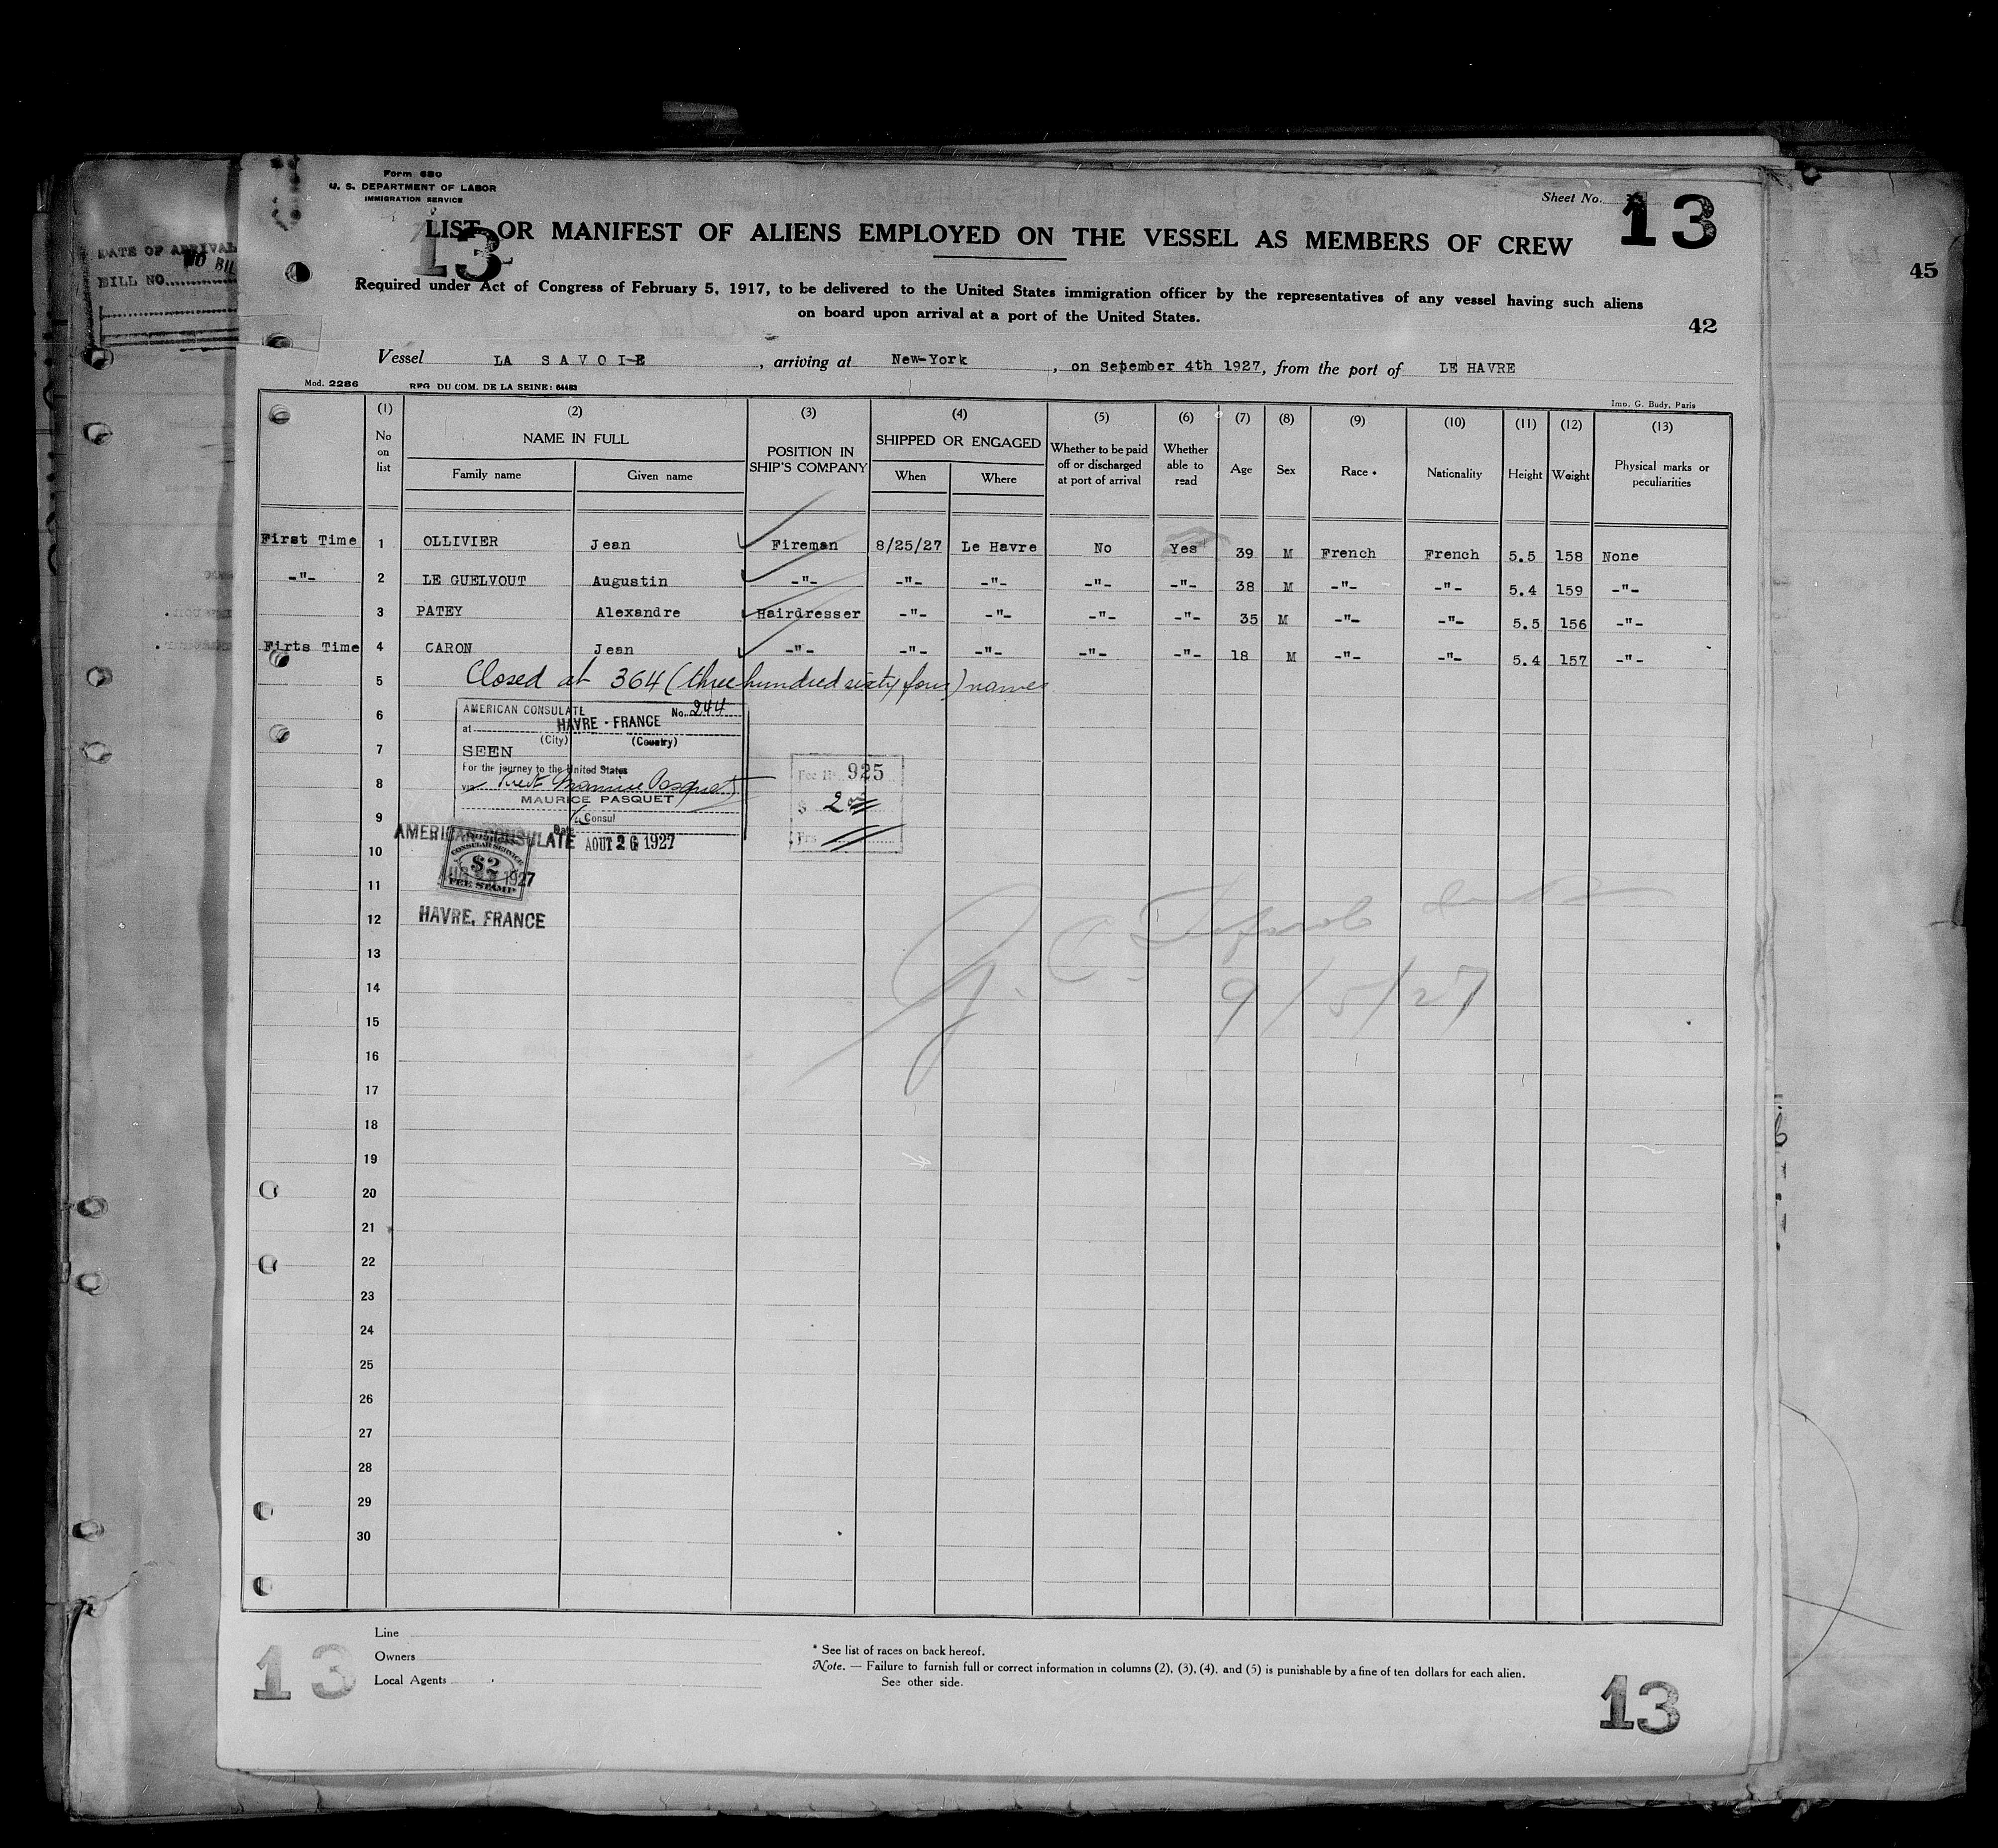 Form 680
U. S. DEPARTMENT OF LABOR
IMMIGRATION SERVICE
Sheet No. 13
13
LIST OR MANIFEST OF ALIENS EMPLOYED ON THE VESSEL AS MEMBERS OF CREW
DATE OF ARRIVAL
BILL NO.
45
Required under Act of Congress of February 5, 1917, to be delivered to the United States immigration officer by the representatives of any vessel having such aliens
on board upon arrival at a port of the United States.
42
Vessel LA SAVOIE, arriving at New-York, on Sepember 4th 1927, from the port of LE HAVRE
Mod. 2286 REG. DU COM. DE LA SEINE: 64483 Imp. G. Budy, Paris
(1) (2) (3) (4) (5) (6) (7) (8) (9) (10) (11) (12) (13)
No on list NAME IN FULL POSITION IN SHIP'S COMPANY SHIPPED OR ENGAGED Whether to be paid off or discharged at port of arrival Whether able to read Age Sex Race * Nationality Height Weight Physical marks or peculiarities
Family name Given name When Where
First Time 1 OLLIVIER Jean Fireman 8/25/27 Le Havre No Yes 39 M French French 5.5 158 None
-"- 2 LE GUELVOUT Augustin -"- -"- -"- -"- -"- 38 M -"- -"- 5.4 159 -"-
3 PATEY Alexandre Hairdresser -"- -"- -"- -"- 35 M -"- -"- 5.5 156 -"-
Firts Time 4 CARON Jean -"- -"- -"- -"- -"- 18 M -"- -"- 5.4 157 -"-
5 Closed at 364 (three hundred sixty four) names
6
7
8
9
10
11
12
13
14
15
16
17
18
19
20
21
22
23
24
25
26
27
28
29
30
AMERICAN CONSULATE No. 244
at HAVRE - FRANCE
(City) (Country)
SEEN
For the journey to the United States
via
Maurice Pasquet
MAURICE PASQUET
Consul
Date AOUT 26 1927
AMERICAN CONSULATE
CONSULAR SERVICE
$2
FEE STAMP
1927
HAVRE, FRANCE
Fee No. 925
$ 2 00
Frs
J. C.
9/5/27
Line
Owners
Local Agents
* See list of races on back hereof.
Note. — Failure to furnish full or correct information in columns (2), (3), (4), and (5) is punishable by a fine of ten dollars for each alien.
See other side.
13
13